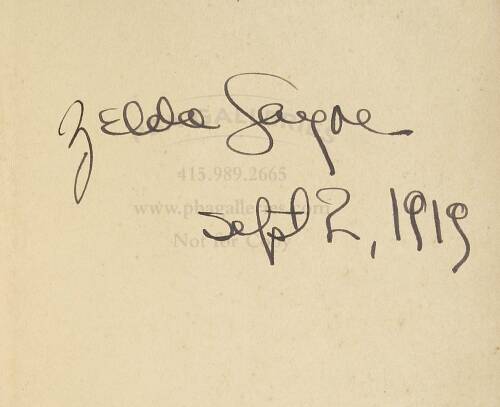 Zelda Sayre
Sept 2, 1919
415.989.2665
www.pbagalleries.com
Not for Copy